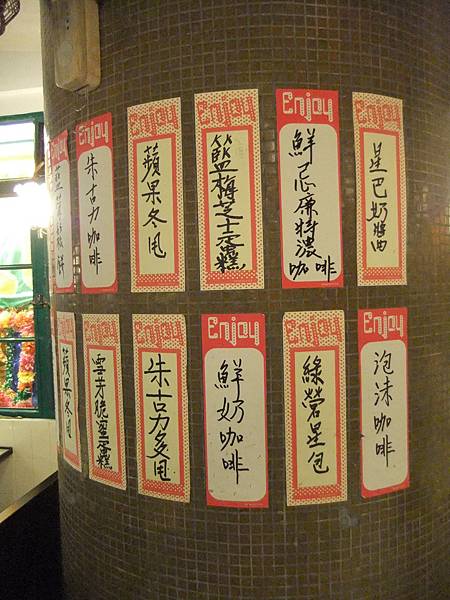 Enjoy
Enjoy
朱古力咖啡
Enjoy
蘋果冬甩
Enjoy
藍梅芝士蛋糕
Enjoy
鮮忌廉特濃
咖啡
Enjoy
Enjoy
蘋果冬甩
Enjoy
Enjoy
朱古力多甩
Enjoy
鮮奶咖啡
Enjoy
綠營星包
Enjoy
泡沫咖啡